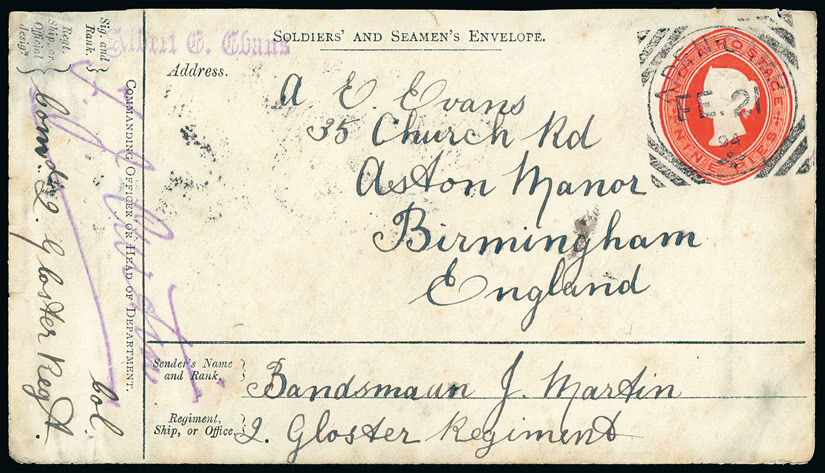 SOLDIERS' AND SEAMEN'S ENVELOPE.
Albert E. Evans
INDIA POSTAGE
NINE PIES
ADEN
FE. 21
94
Address.
A E. Evans
35 Church Rd
Aston Manor
Birmingham
England
Sender's Name
and Rank.
Bandsmaun J. Martin
Regiment,
Ship, or Office.
2. Gloster Regiment
Sig. and
Rank.
Regt.
Ship, or
Official
desig^n
COMMANDING OFFICER OR HEAD OF DEPARTMENT.
Col.
comdg 2. Gloster Regt.